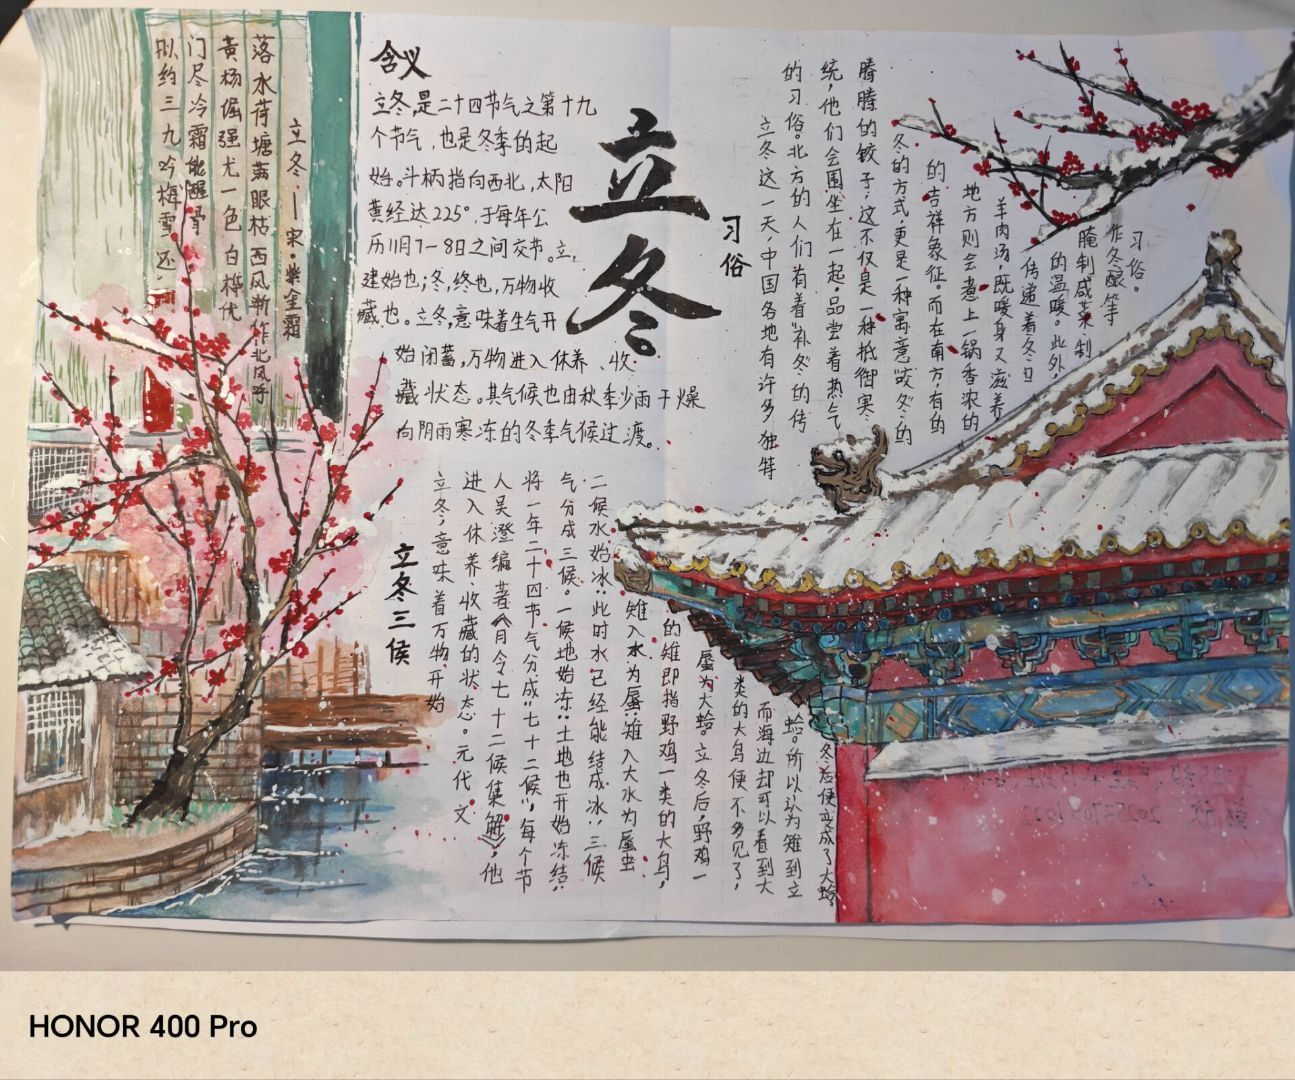 立冬——宋·紫金霜
落水荷塘满眼枯 西风渐作北风呼
黄杨倔强尤一色 白桦优
门尽冷霜能醒骨
拟约三九吟梅雪还
含义
立冬,是二十四节气之第十九
个节气,也是冬季的起
始。斗柄指向西北,太阳
黄经达225°,于每年公
历11月7-8日之间交节。立,
建始也;冬,终也,万物收
藏也。立冬,意味着生气开
始闭蓄,万物进入休养、收
藏状态。其气候也由秋季少雨干燥
向阴雨寒冻的冬季气候过渡。
立冬
习俗
立冬这一天,中国各地有许多独特
的习俗。北方的人们有着"补冬"的传
统,他们会围坐在一起。品尝着热气
腾腾的饺子,这不仅是一种抵御寒
冬的方式更是一种寓意"咬冬"的
的吉祥象征。而在南方,有的
地方则会煮上一锅香浓的
羊肉汤,既暖身又滋养
传递着冬日
的温暖。此外,
腌制咸菜 制
作冬酿等
习俗。
立冬三候
立冬,意味着万物开始
进入休养收藏的状态。元代文
人吴澄编著《月令七十二候集解》,他
将一年二十四节气分成"七十二候",每个节
气分成三候。一候地始冻:土地也开始冻结:
二候水始冰:此时水已经能结成冰:三候
雉入水为蜃:雉入大水为蜃虫
的雉即指野鸡一类的大鸟,
蜃为大蛤。立冬后,野鸡一
类的大鸟便不多见了,
而海边却可以看到大
蛤。所以认为雉到立
冬后便变成了大蛤。
HONOR 400 Pro